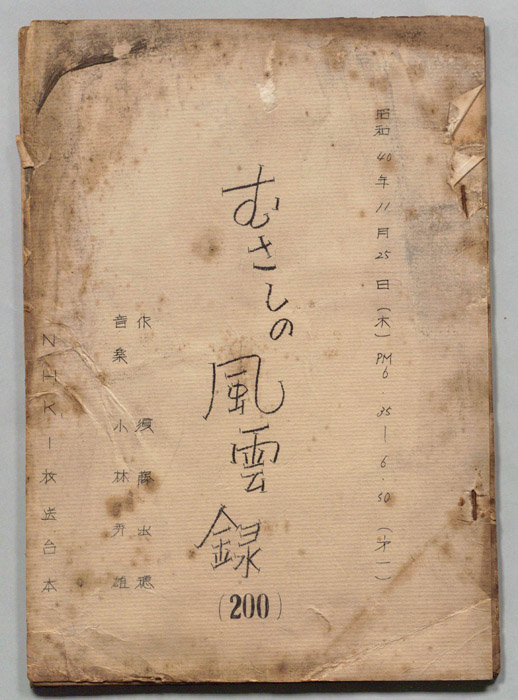 昭和40年11月25日(木)PM6.35―6.50(才一)
むさしの風雲録
(200)
作 須藤出穂
音楽 小林亜星
NHK―放送台本